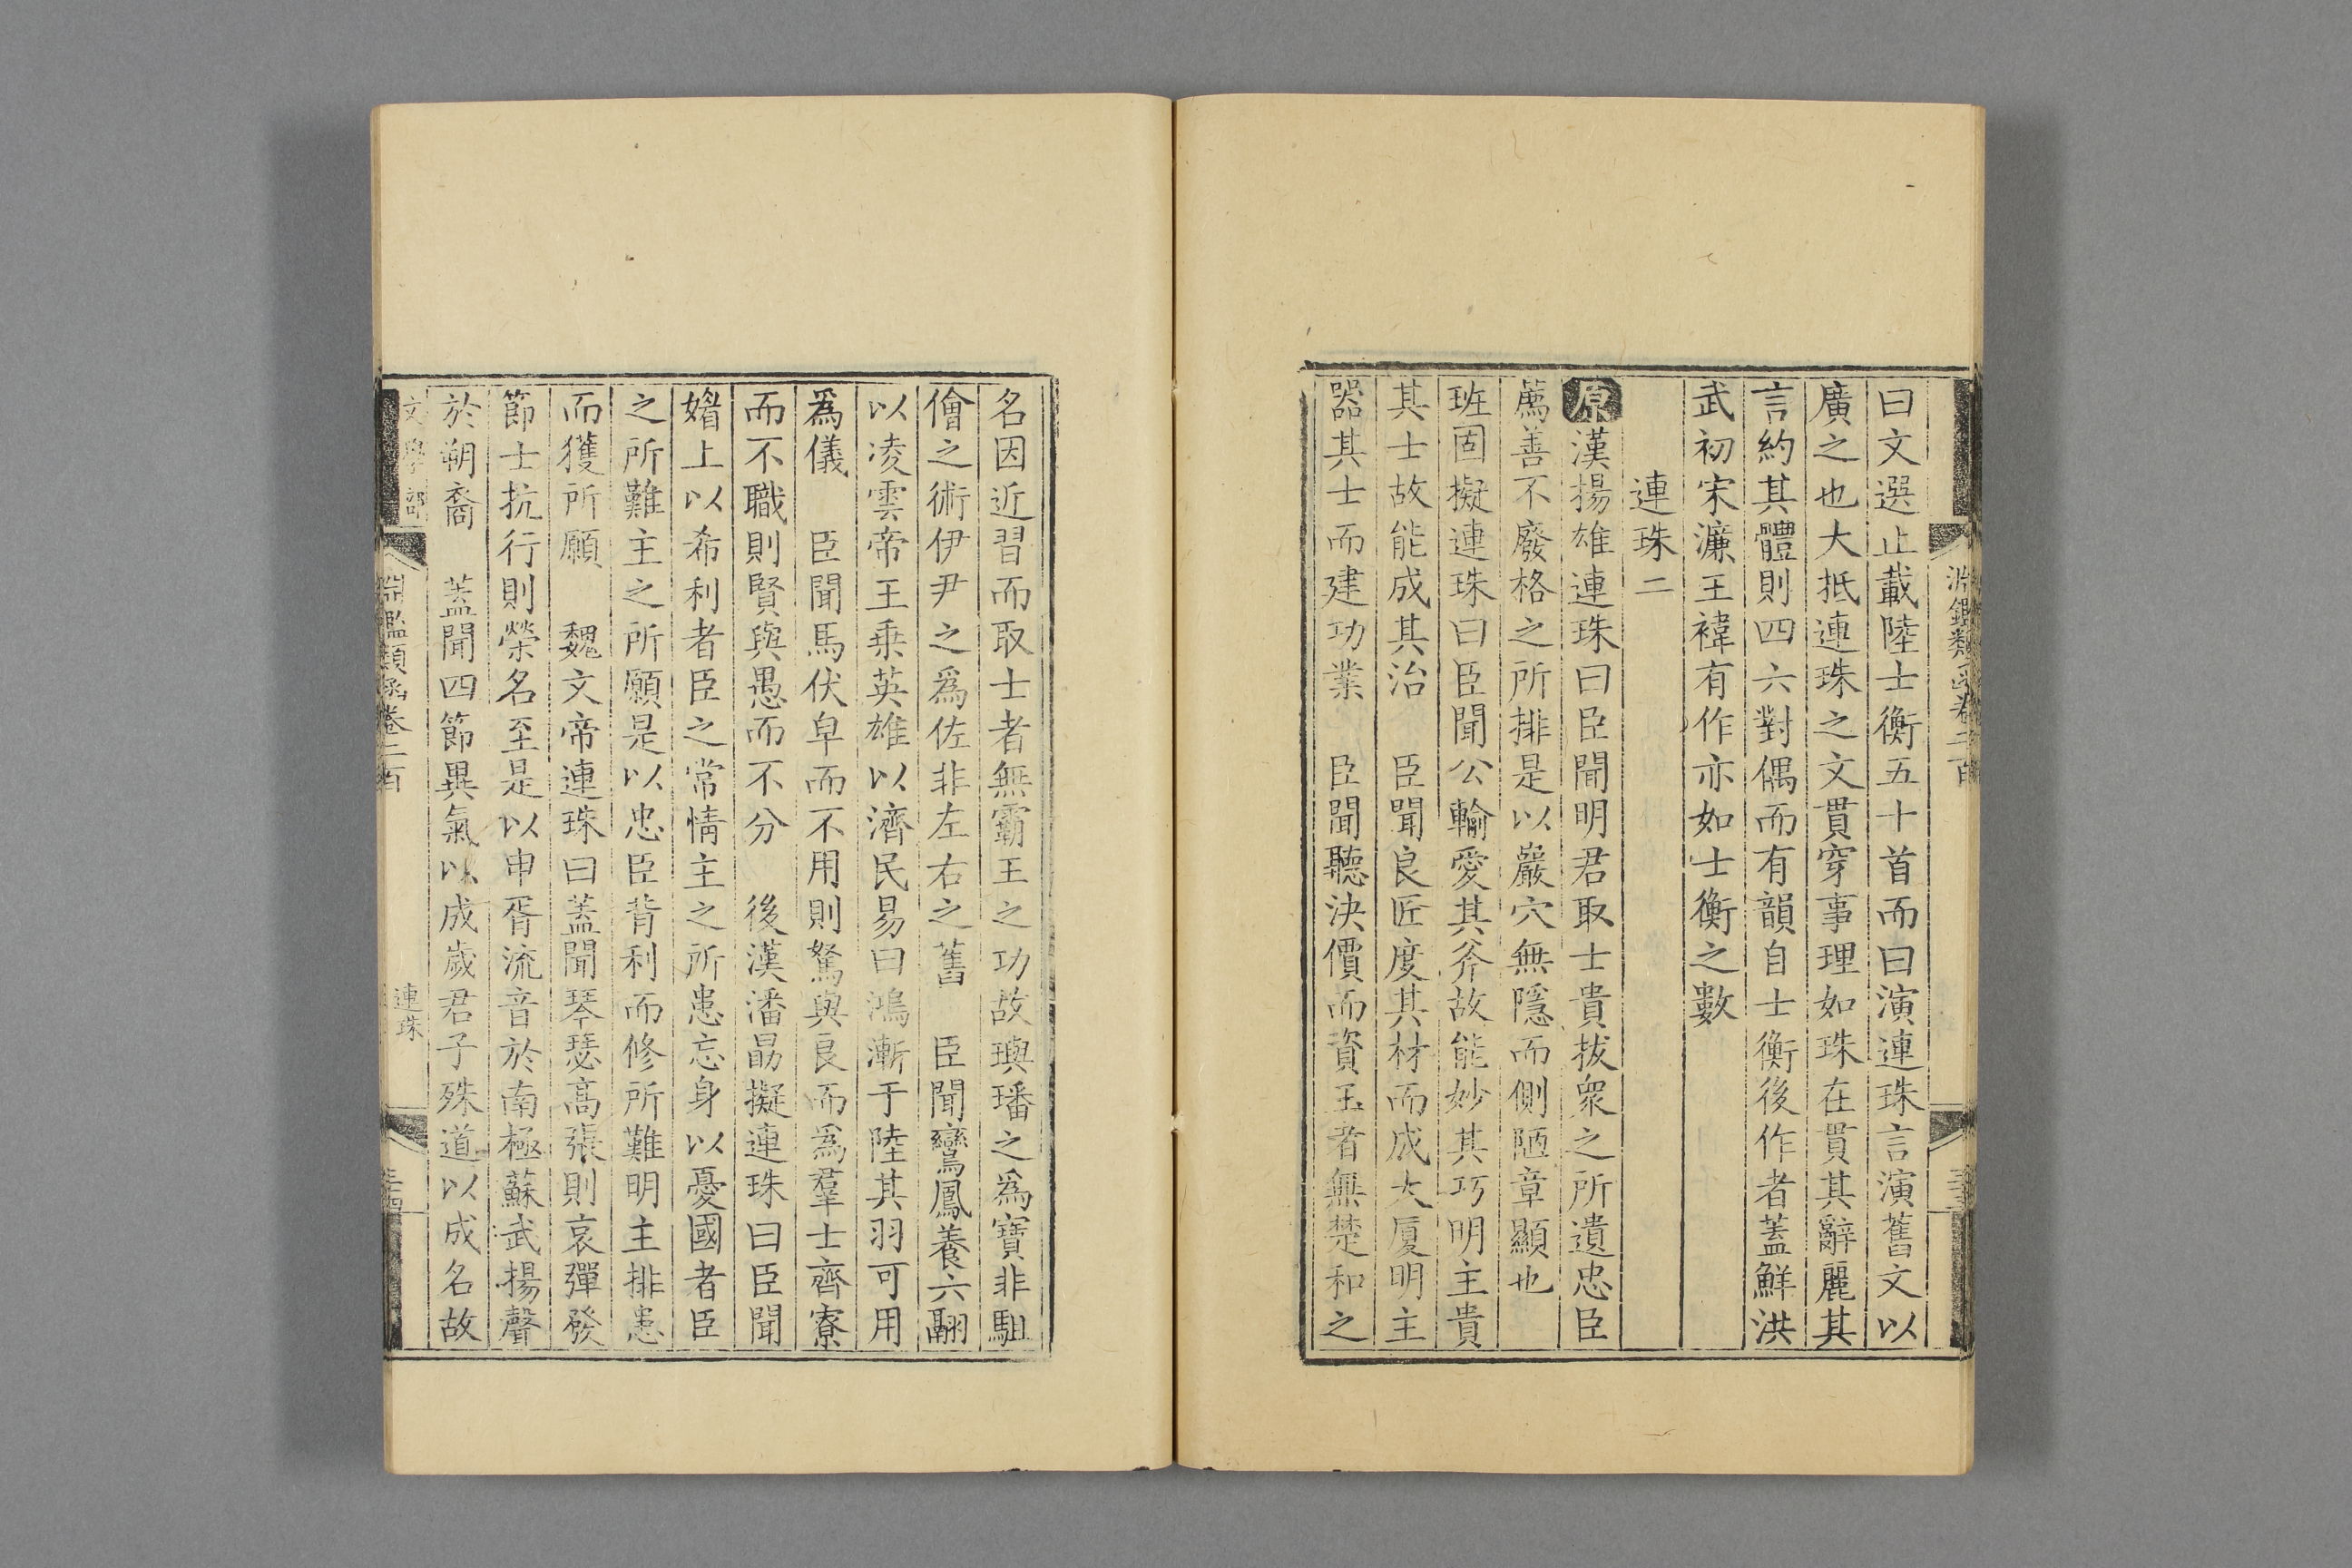 曰文選止載陸士衡五十首而曰演連珠言演舊文以
廣之也大抵連珠之文貫穿事理如珠在貫其辭麗其
言約其體則四六對偶而有韻自士衡後作者蓋鮮洪
武初宋濂王褘有作亦如士衡之數
連珠二
原漢揚雄連珠曰臣聞明君取士貴拔衆之所遺忠臣
薦善不廢格之所排是以巖穴無隱而側陋章顯也
班固擬連珠曰臣聞公輸愛其斧故能妙其巧明主貴
其士故能成其治　臣聞良匠度其材而成大厦明主
器其士而建功業　臣聞聽決價而資玉者無楚和之
名因近習而取士者無霸王之功故璵璠之爲寶非駔
儈之術伊尹之爲佐非左右之舊　臣聞鸞鳳養六翮
以凌雲帝王乗英雄以濟民易曰鴻漸于陸其羽可用
爲儀　臣聞馬伏皁而不用則駑與良而爲羣士齊寮
而不職則賢與愚而不分　後漢潘勗擬連珠曰臣聞
媚上以希利者臣之常情主之所患忘身以憂國者臣
之所難主之所願是以忠臣背利而修所難明主排患
而獲所願　魏文帝連珠曰蓋聞琴瑟高張則哀彈發
節士抗行則榮名至是以申胥流音於南極蘇武揚聲
於朔裔　蓋聞四節異氣以成歲君子殊道以成名故
文學部
淵鑑類函卷二百
連珠